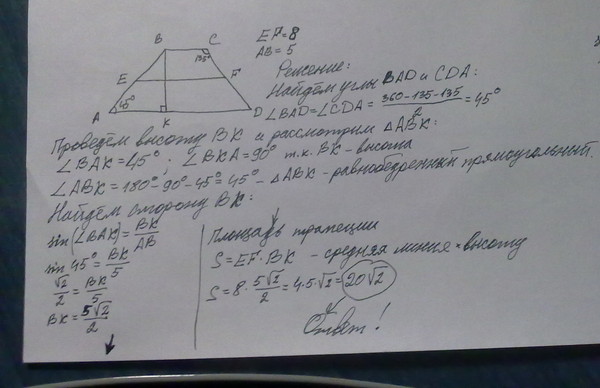 B C
135°
E F
A 45° K D
EF=8
AB=5
Решение:
Найдём углы BAD и CDA:
∠BAD=∠CDA= (360-135-135)/2 =45°
Проведём высоту BK и рассмотрим △ABK:
∠BAK=45°; ∠BKA=90° т.к. BK-высота
∠ABK=180°-90°-45°=45° - △ABK - равнобедренный прямоугольный.
Найдём сторону BK:
sin(∠BAK)=BK/AB
sin 45°=BK/5
√2/2=BK/5
BK=5√2/2
Площадь трапеции
S=EF·BK - средняя линия × высоту
S=8·5√2/2=4·5·√2=20√2
Ответ!